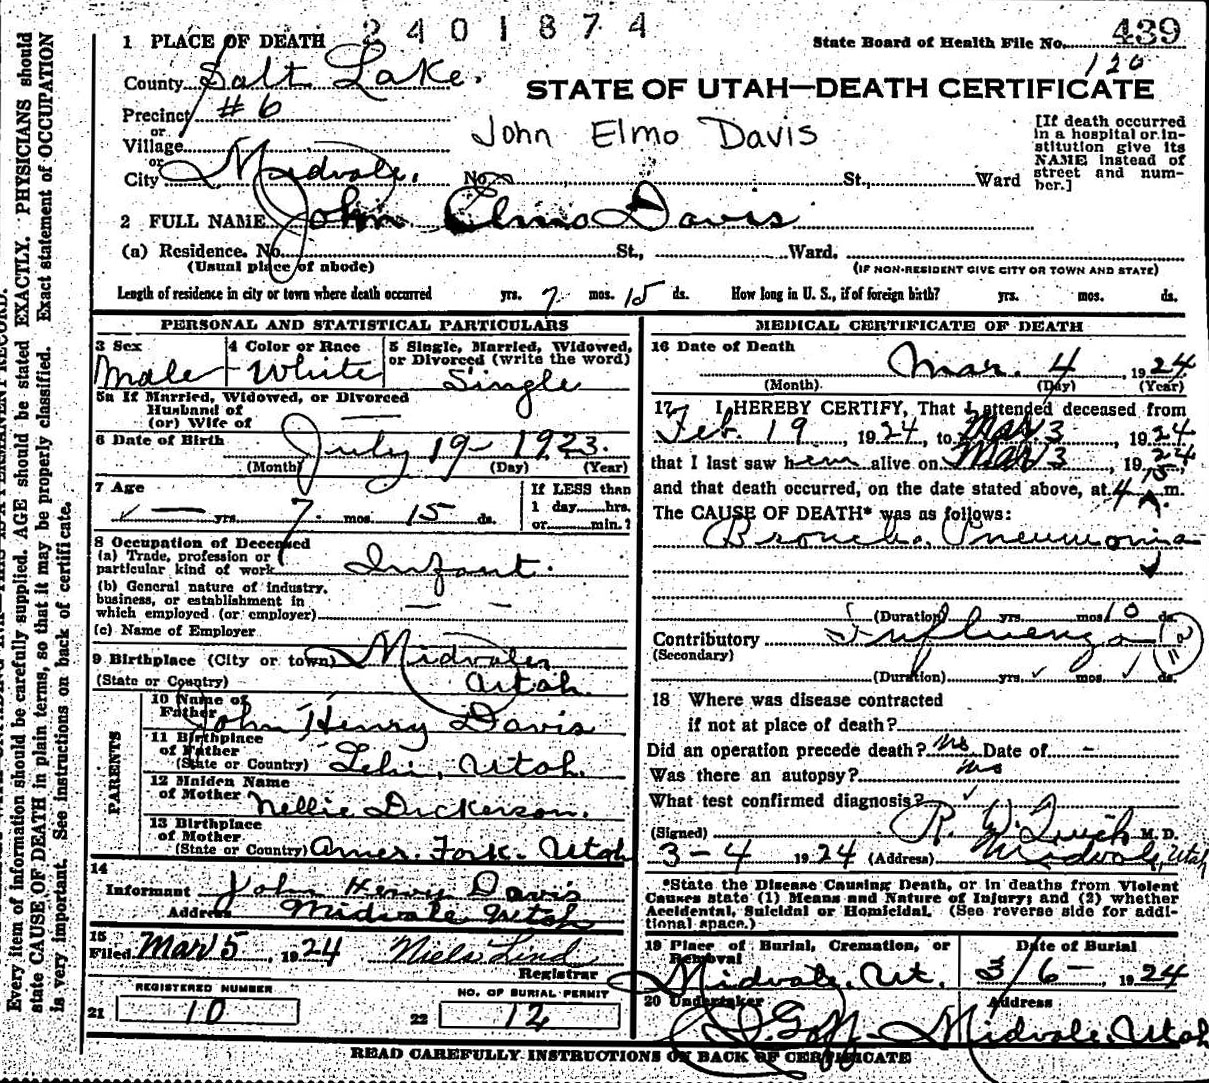 2401874
1 PLACE OF DEATH
State Board of Health File No. 439
120
County Salt Lake.
STATE OF UTAH—DEATH CERTIFICATE
Precinct #6
or
Village
John Elmo Davis
[If death occurred in a hospital or institution give its NAME instead of street and number.]
or
City Midvale. No. St., Ward
2 FULL NAME John Elmo Davis
(a) Residence. No. St., Ward.
(Usual place of abode) (IF NON-RESIDENT GIVE CITY OR TOWN AND STATE)
Length of residence in city or town where death occurred yrs. 7 mos. 15 ds. How long in U. S., if of foreign birth? yrs. mos. ds.
PERSONAL AND STATISTICAL PARTICULARS
3 Sex 4 Color or Race 5 Single, Married, Widowed, or Divorced (write the word)
Male White Single
5a If Married, Widowed, or Divorced
Husband of
(or) Wife of
6 Date of Birth July 19- 1923.
(Month) (Day) (Year)
7 Age If LESS than
— yrs. 7 mos. 15 ds. 1 day hrs.
or min.?
8 Occupation of Deceased
(a) Trade, profession or
particular kind of work Infant.
(b) General nature of industry,
business, or establishment in
which employed (or employer) — —
(c) Name of Employer
9 Birthplace (City or town) Midvale
(State or Country) Utah.
PARENTS
10 Name of
Father John Henry Davis
11 Birthplace
of Father
(State or Country) Lehi, Utah.
12 Maiden Name
of Mother Nellie Dickerson.
13 Birthplace
of Mother
(State or Country) Amer. Fork. Utah
14
Informant John Henry Davis
Address Midvale Utah
15
Filed Mar 5, 1924 Niels Lind
Registrar
REGISTERED NUMBER NO. OF BURIAL PERMIT
21 10 22 12
MEDICAL CERTIFICATE OF DEATH
16 Date of Death
Mar. 4, 1924
(Month) (Day) (Year)
17 I HEREBY CERTIFY, That I attended deceased from
Feb. 19, 1924, to Mar 3, 1924
that I last saw him alive on Mar 3, 1924
and that death occurred, on the date stated above, at 4 15 A. m.
The CAUSE OF DEATH* was as follows:
Broncho Pneumonia
(Duration) yrs. mos. 10 ds.
Contributory Influenza
(Secondary)
(Duration) yrs. mos. ds.
18 Where was disease contracted
if not at place of death?
Did an operation precede death? No Date of -
Was there an autopsy? No
What test confirmed diagnosis?
(Signed) R. M. D.
3-4 1924 (Address) Midvale, Utah
*State the Disease Causing Death, or in deaths from Violent
Causes state (1) Means and Nature of Injury; and (2) whether
Accidental, Suicidal or Homicidal. (See reverse side for addi-
tional space.)
19 Place of Burial, Cremation, or Date of Burial
Removal
Midvale, Ut. 3/6- 1924
20 Undertaker Address
Goff- Midvale, Utah
READ CAREFULLY INSTRUCTIONS ON BACK OF CERTIFICATE
Every item of information should be carefully supplied. AGE should be stated EXACTLY. PHYSICIANS should
state CAUSE OF DEATH in plain terms, so that it may be properly classified. Exact statement of OCCUPATION
is very important. See instructions on back of certificate.